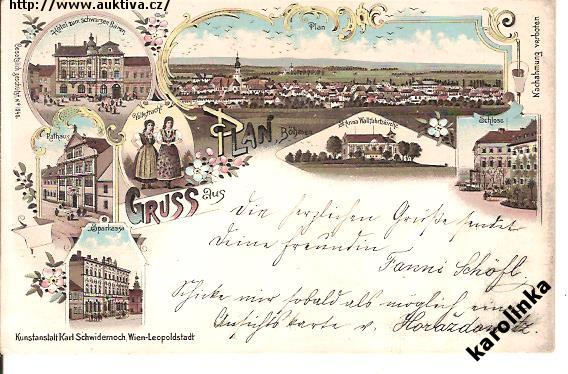 http://www.auktiva.cz/
Hôtel zum schwarzen Bären
Gesetzlich geschützt
Plan
Nachahmung verboten
Rathaus
Volkstracht
PLAN
Böhmen
St. Anna Wallfahrtskirche
Schloss
GRUSS aus
Sparkassa
Die herzlichen Grüße sendet
Deine Freundin
Fanni Schöfl
Schicke mir sobald als möglich eine
Ansichtskarte v. Horaždowitz
Kunstanstalt Karl Schwidernoch, Wien-Leopoldstadt
karolinka